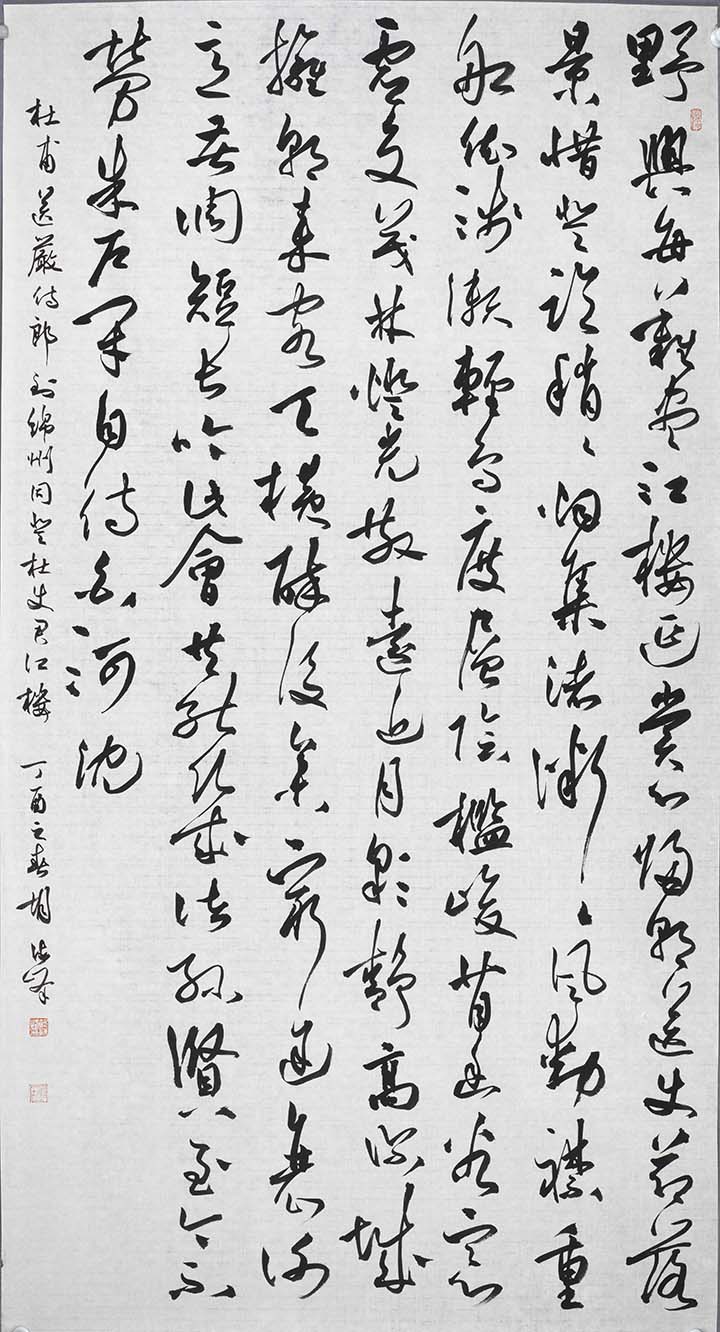 野興每難盡江樓延賞心歸朝送使節落
景惜登臨稍〻烟集渚微〻風動襟重
船依淺瀨輕鳥度層陰檻峻背幽谷窗
虛交茂林燈光散遠近月彩靜高深城
擁朝來客天橫醉後參窮途衰謝
意苦調短長吟此會共能幾諸孫賢至今不
勞朱戶閉自待白河沈
杜甫送嚴侍郎到綿州同登杜使君江樓 丁酉之春 胡